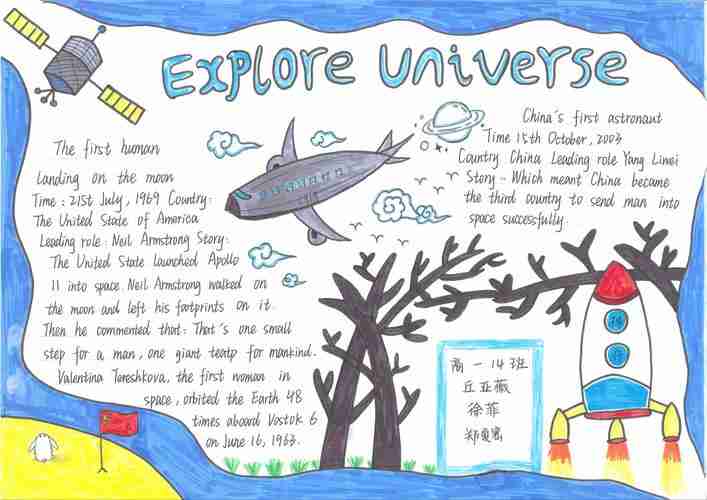 Explore Universe
The first human
landing on the moon
Time: 21st July, 1969 Country:
The United State of America
Leading role: Neil Armstrong Story:
The United State launched Apollo
11 into space. Neil Armstrong walked on
the moon and left his footprints on it.
Then he commented that: That's one small
step for a man, one giant for mankind.
Valentina Tereshkova, the first woman in
space, orbited the Earth 48
times aboard Vostok 6
on June 16, 1963.
China's first astronaut
Time 15th October, 2003
Country China Leading role Yang Liwei
Story - Which meant China became
the third country to send man into
space successfully.
高一14班
丘亚薇
徐菲
郑